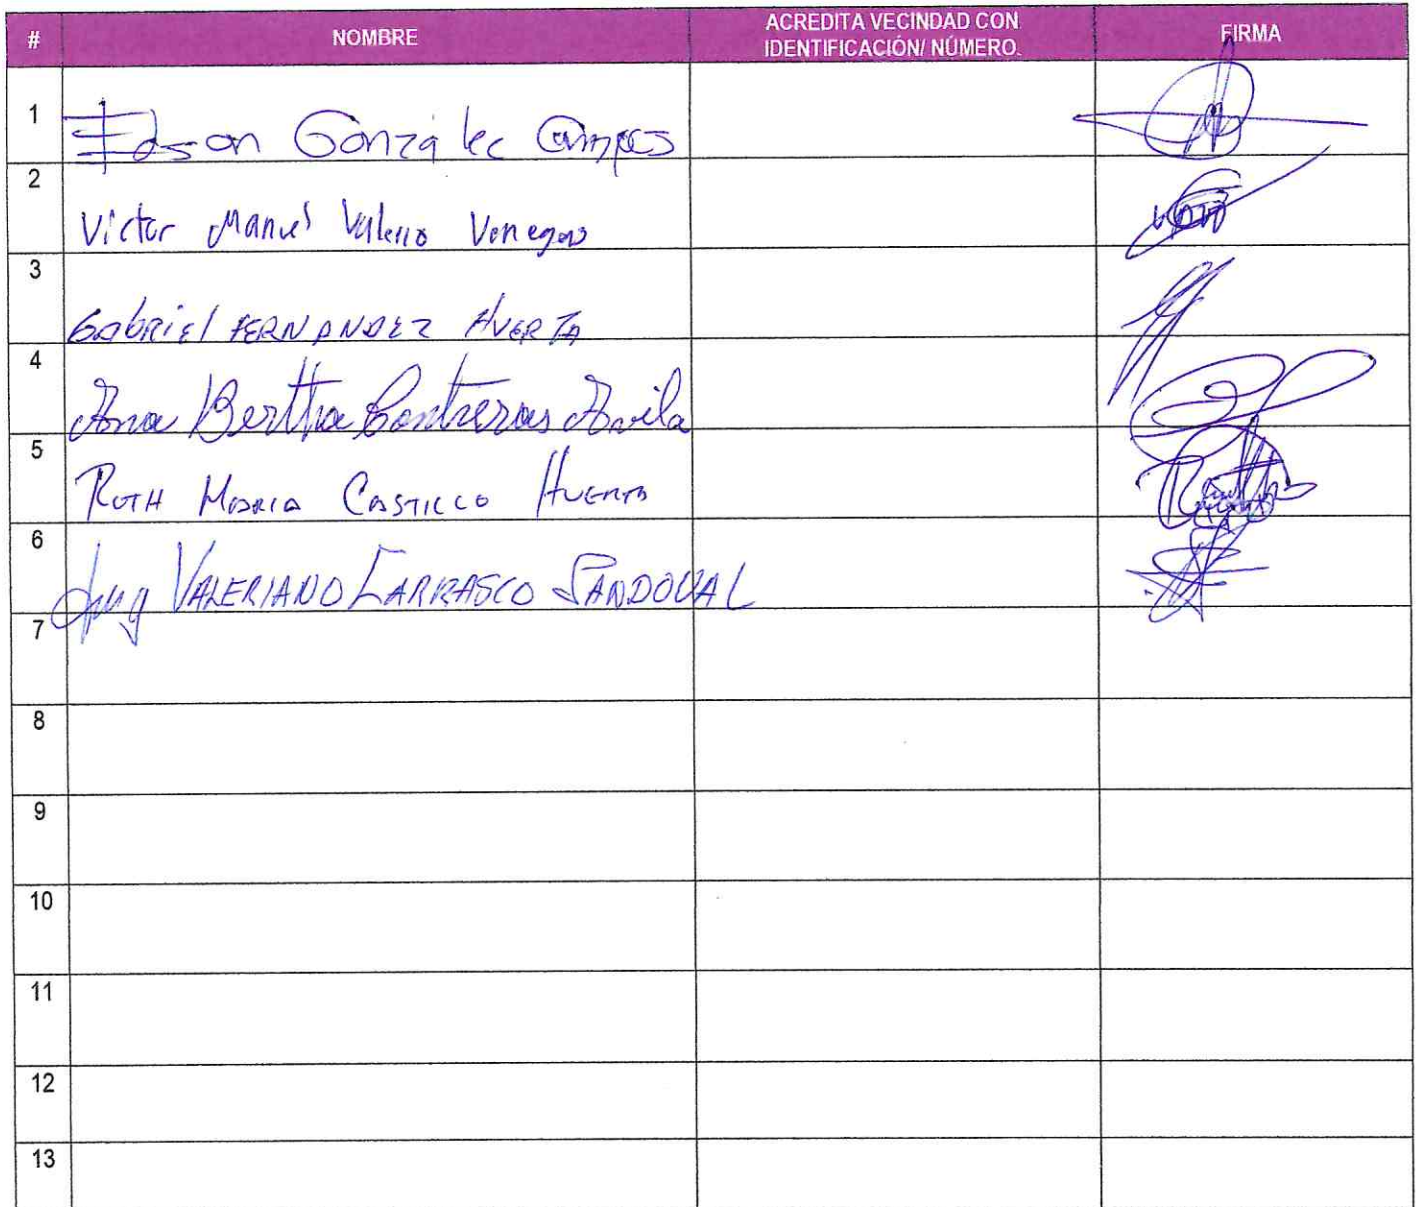 # NOMBRE ACREDITA VECINDAD CON IDENTIFICACIÓN/ NÚMERO. FIRMA
1 Edson González Campos
2 Victor Manuel Valerio Venegas
3 Gabriel FERNANDEZ HUERTA
4 Ana Bertha Contreras Avila
5 RUTH MARIA CASTILLO HUERTA
6 Ing VALERIANO CARRASCO SANDOVAL
7
8
9
10
11
12
13